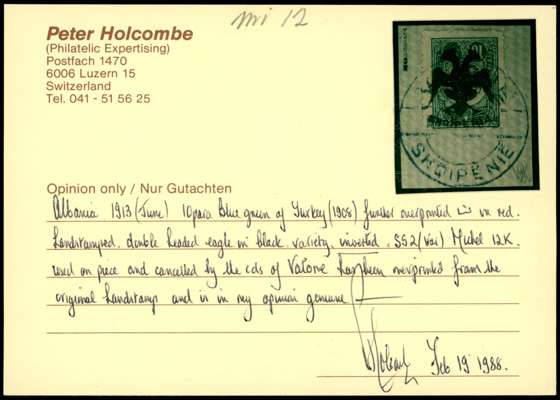 mi 12
Peter Holcombe
(Philatelic Expertising)
Postfach 1470
6006 Luzern 15
Switzerland
Tel. 041 - 51 56 25
SHQIPËNIË
Opinion only / Nur Gutachten
Albania 1913 (June) 10para blue green of Turkey (1908) further overprinted in red.
handstamped double headed eagle in black variety inverted. SG2 (var) Michel 12K.
used on piece and cancelled by the cds of Valone has been overprinted from the
original handstamp and is in my opinion genuine
Holcombe Feb 19 1988.